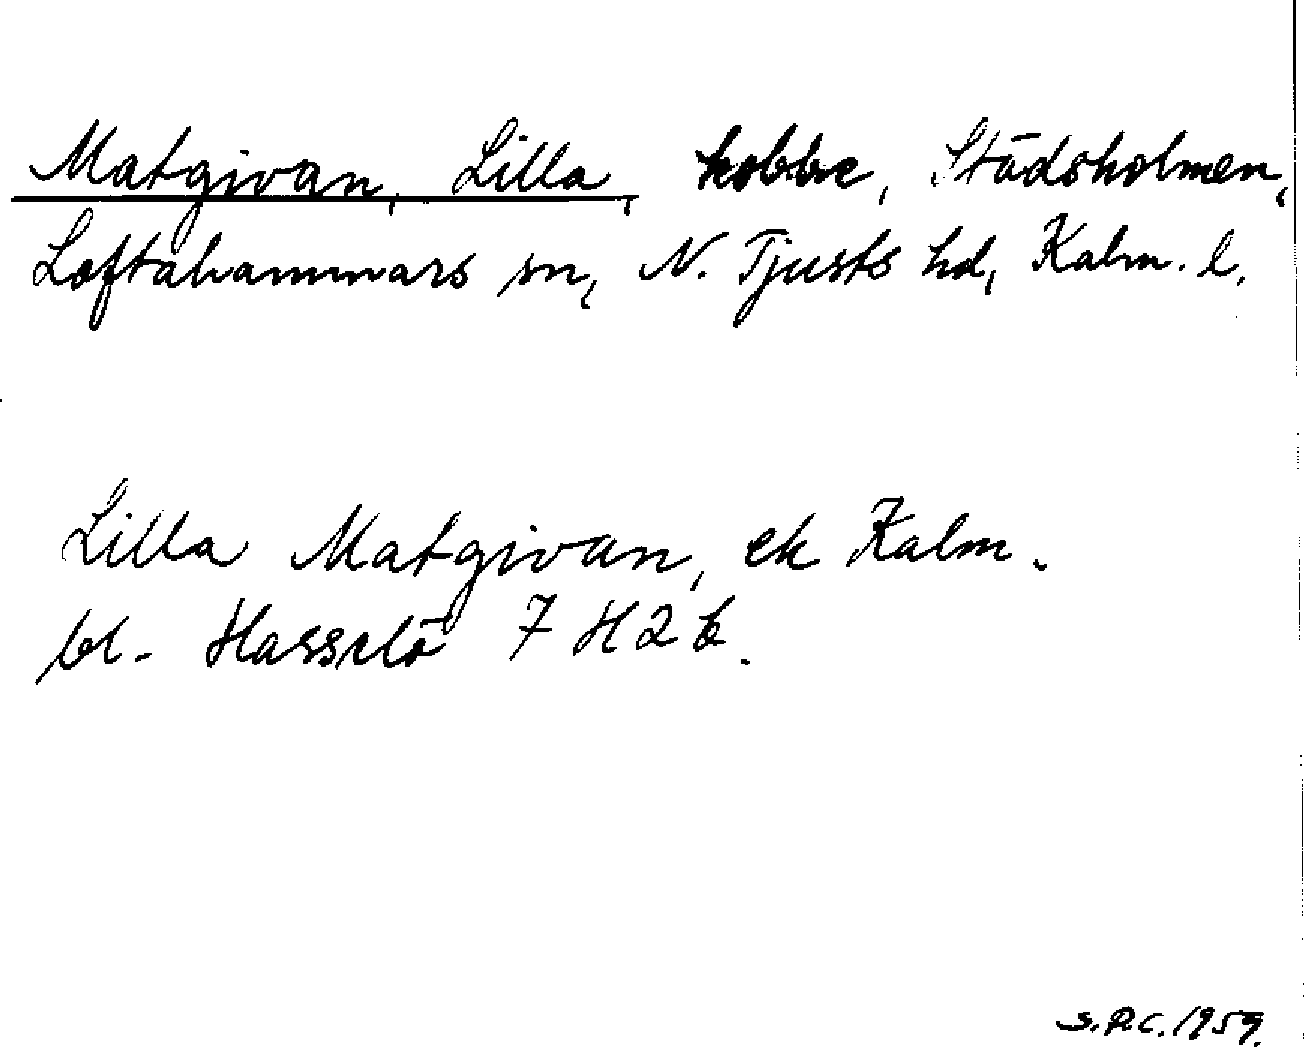 Matgivan, Lilla, kobbe, Städsholmen,
Loftahammars sn, N. Tjusts hd, Kalm. l.
Lilla Matgivan, ek Kalm.
bl. Hasselö 7 H 2 b.
S.R.C. 1959.